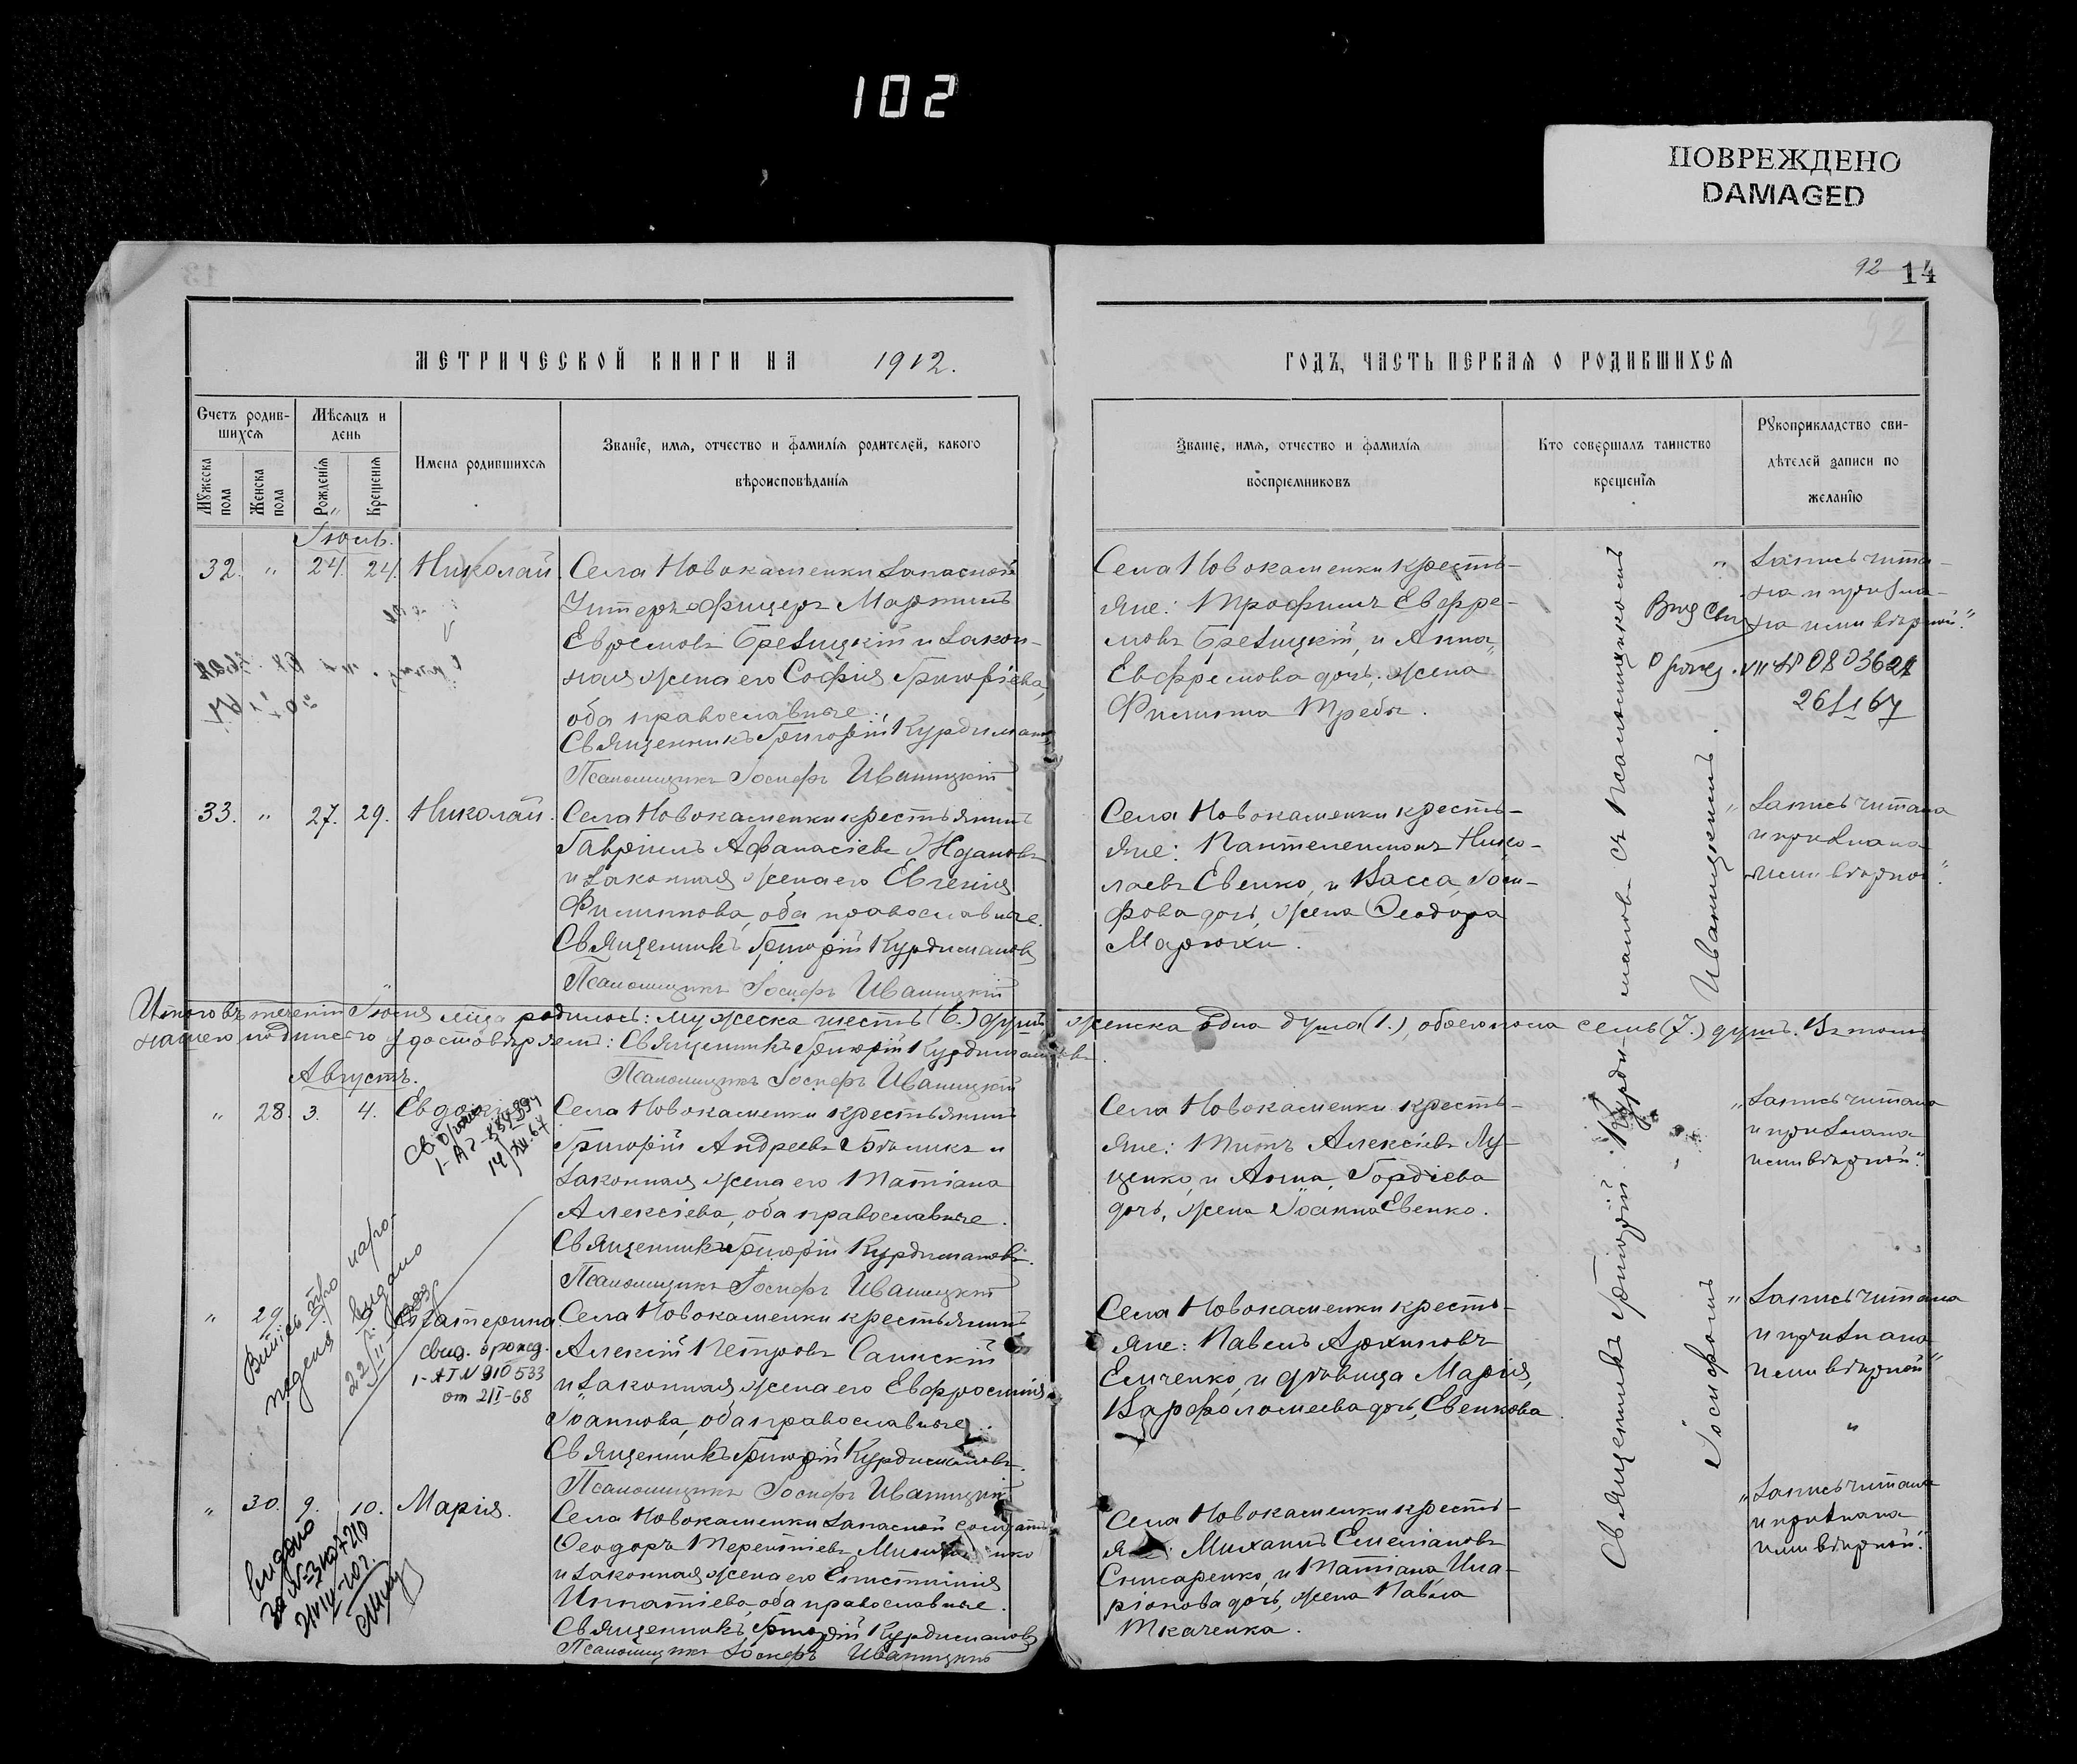 102
ПОВРЕЖДЕНО
DAMAGED
92 14
МЕТРИЧЕСКОЙ КНИГИ НА 1912.
ГОДЪ, ЧАСТЬ ПЕРВАЯ О РОДИВШИХСЯ
Счетъ родив-
шихся
Мужеска пола
Женска пола
Мѣсяцъ и
день
Рожденія
Крещенія
Имена родившихся
Званіе, имя, отчество и фамилія родителей, какого
вѣроисповѣданія
Званіе, имя, отчество и фамилія
воспріемниковъ
Кто совершалъ таинство
крещенія
Рукоприкладство сви-
дѣтелей записи по
желанію
Іюль.
32. " 24. 24. Николай
Села Новокаменки Запасной
Унтеръ-офицеръ Мартинъ
Евфремовъ Брезицкій и закон-
ная жена его Софія Григоріева,
оба православные.
Священникъ Григорій Курдиманов
Псаломщикъ Іосифъ Иваницкій
Села Новокаменки кресть-
яне: Трофимъ Евфре-
мовъ Брезицкій, и Анна,
Евфремова дочь, жена
Филиппа Требы.
" Запись чита-
на и призна-
на нами вѣрной."
26/I 67
33. " 27. 29. Николай.
Села Новокаменки крестьянинъ
Гавріилъ Афанасіевъ Ждановъ
и законная жена его Евгенія
Филиппова, оба православные.
Священникъ Григорій Курдимановъ
Псаломщикъ Іосифъ Иваницкій
Села Новокаменки кресть-
яне: Пантелеимонъ Нико-
лаевъ Евенко, и Васса, Іоси-
фова дочь, жена Ѳеодора
Марюхи.
" Запись читана
и признана
нами вѣрной."
Итого въ теченіи Іюля м-ца родилось: мужеска шесть (6.) душъ женска одна душа (1.), обоего пола семь (7.) душъ. Въ томъ
Священникъ Григорій Курдимановъ.
Псаломщикъ Іосифъ Иваницкій
Августъ.
" 28. 3. 4. Евдокія
14/XII.67
Села Новокаменки крестьянинъ
Григорій Андреевъ Бѣликъ и
законная жена его Татіана
Алексіева, оба православные.
Священникъ Григорій Курдимановъ.
Псаломщикъ Іосифъ Иваницкій
Села Новокаменки кресть-
яне: Титъ Алексіевъ Лу-
ценко, и Анна, Гордіева
дочь, жена Іоанна Евенко.
" Запись читана
и признана
нами вѣрной."
" 29. Екатерина
свид. о рожд.
1-АТ № 910533
от 2/I-68
Села Новокаменки крестьянинъ
Алексій Петровъ Салискій
и законная жена его Евфросинія
Іоаннова, оба православные.
Священникъ Григорій Курдимановъ.
Псаломщикъ Іосифъ Иваницкій
Села Новокаменки кресть-
яне: Павелъ Архиповъ
Емченко, и дѣвица Марія,
Варфоломеева дочь, Евенкова.
" Запись читана
и признана
нами вѣрной"
"
" 30. 9. 10. Марія.
видано
Села Новокаменки запасной солдатъ
Ѳеодоръ Терентіевъ
и законная жена его Епистимія
Ипатіева, оба православные.
Священникъ Григорій Курдимановъ
Псаломщикъ Іосифъ Иваницкій
Села Новокаменки кресть-
Михаилъ Емеліановъ
Снисаренко, и Татіана Ила-
ріонова дочь, жена Павла
Ткаченка.
" Запись читана
и признана
нами вѣрной."
Священникъ Григорій Курди-мановъ съ Псаломщикомъ
Іосифомъ Иваницкимъ.